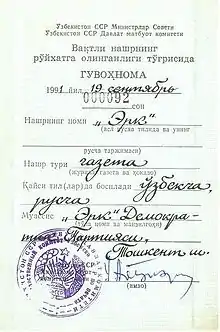 Ўзбекистон ССР Министрлар Совети
Ўзбекистон ССР Давлат матбуот комитети
Вақтли нашрнинг
рўйхатга олинганлиги тўғрисида
ГУВОҲНОМА
1991 йил „19 сентябрь
000092 сон
Нашрнинг номи „Эрк"
(асл нусха тилида ва унинг
русча таржимаси)
Нашр тури газета
(журнал газета ва ҳоказо)
Қайси тил(лар)да босилади ўзбекча,
русча
Муассис „Эрк" Демокра-
(тўла номи ва манзилгоҳи)
тик Партияси,
Тошкент ш.
(имзо)